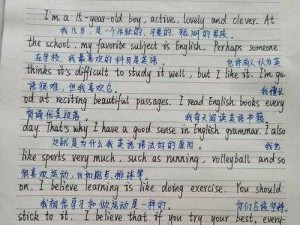 I'm a 15-year-old boy, active, lovely and clever. At
我15岁,是个活跃的、可爱的、聪明的男孩。
the school, my favorite subject is English. Perhaps someone
在学校,我最喜欢的科目是英语。 也许有人认为
thinks it's difficult to study it well, but I like it. I'm go-
很难,但我喜欢它。 我擅长
od at reciting beautiful passages. I read English books every
背诵优美段落。 我每天阅读英语书籍
day. That's why I have a good sense in English grammar. I also
这就是为什么我英语语法好的原因 我也
like sports very much, such as running, volleyball and so
很喜欢运动,比如跑步、排球等。
on. I believe learning is like doing exercise. You should
我相信学习和做运动是一样的。 你们应该坚持。
stick to it. I believe that if you try your best, every-